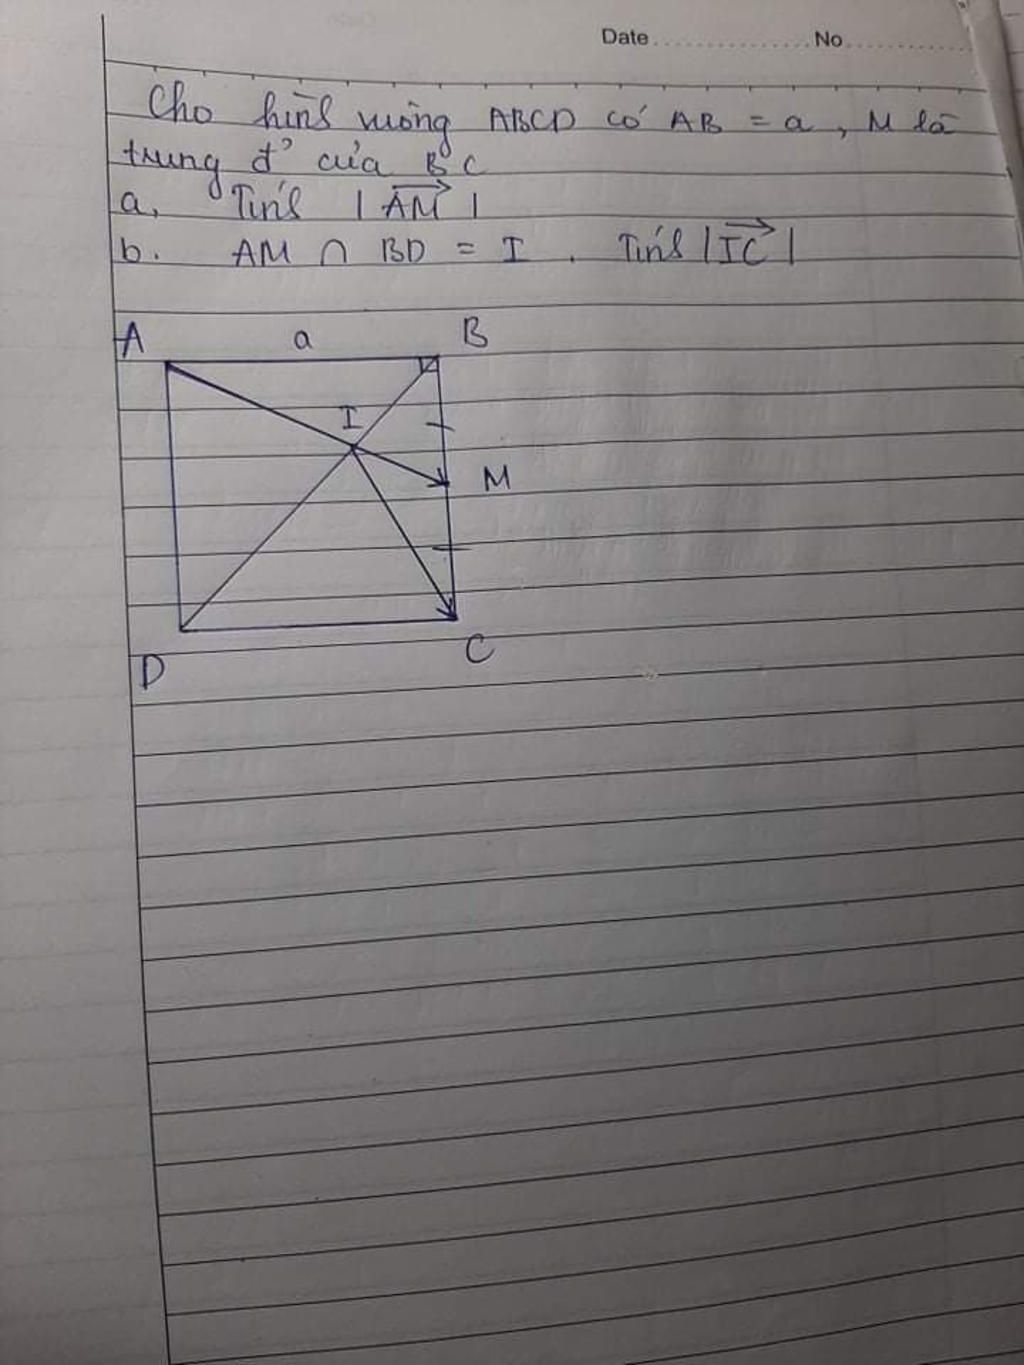 Date ............... No ...............
Cho hình vuông ABCD có AB = a, M là
trung đ' của BC
a, Tính |AM|
b. AM ∩ BD = I. Tính |IC|
A a B
I
M
D C